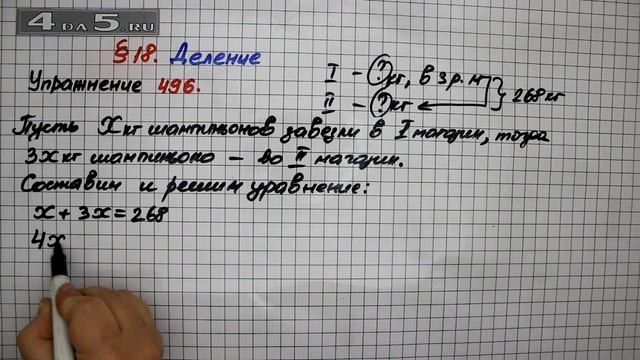 4DA5.RU
§18. Деление
Упражнение 496.
I - ? кг, в 3 р. м
II - ? кг
} 268 кг
Пусть X кг шампиньонов завезли в I магазин, тогда
3x кг шампиньоно - во II магазин.
Составим и решим уравнение:
x + 3x = 268
4x